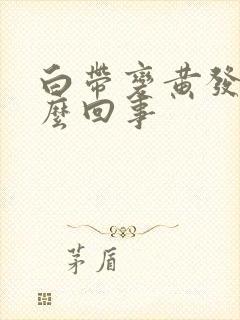 白帶變黃發
麼回事
茅盾